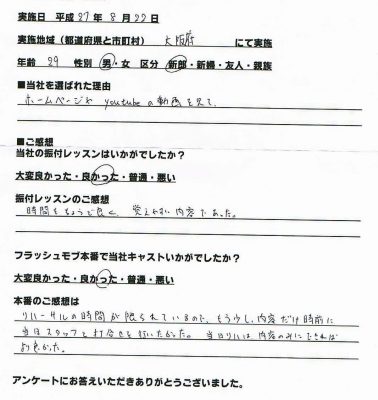 実施日 平成 27 年 8 月 22 日
実施地域（都道府県と市町村） 大阪府 にて実施
年齢 29 性別 男・女 区分 新郎・新婦・友人・親族
■当社を選ばれた理由
ホームページや youtubeの動画を見て、
■ご感想
当社の振付レッスンはいかがでしたか？
大変良かった・良かった・普通・悪い
振付レッスンのご感想
時間もちょうど良く、覚えやすい内容であった。
フラッシュモブ本番で当社キャストいかがでしたか？
大変良かった・良かった・普通・悪い
本番のご感想は
リハーサルの時間が限られているので、もう少し、内容だけ時前に
当日スタッフと打合せを行いたかった。 当日リハは、内容のみにできれば
より良かった。
アンケートにお答えいただきありがとうございました。